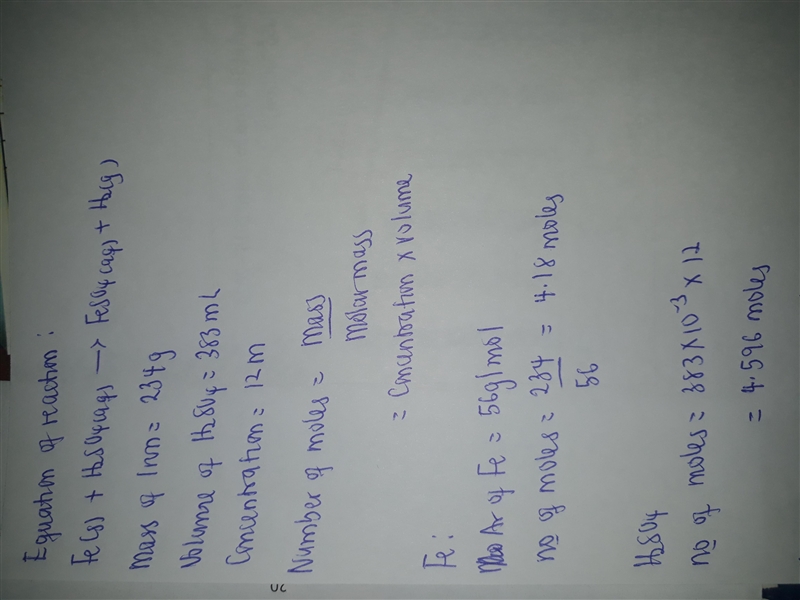 Equation of reaction:
Fe(s) + H2SO4(aq) → FeSO4(aq) + H2(g)
Mass of Iron = 234g
Volume of H2SO4 = 383mL
Concentration = 12M
Number of moles = Mass
Molar mass
= Concentration x volume
Fe:
Ar of Fe = 56g/mol
no of moles = 234 = 4.18 moles
56
H2SO4
no of moles = 383 x 10⁻³ x 12
= 4.596 moles